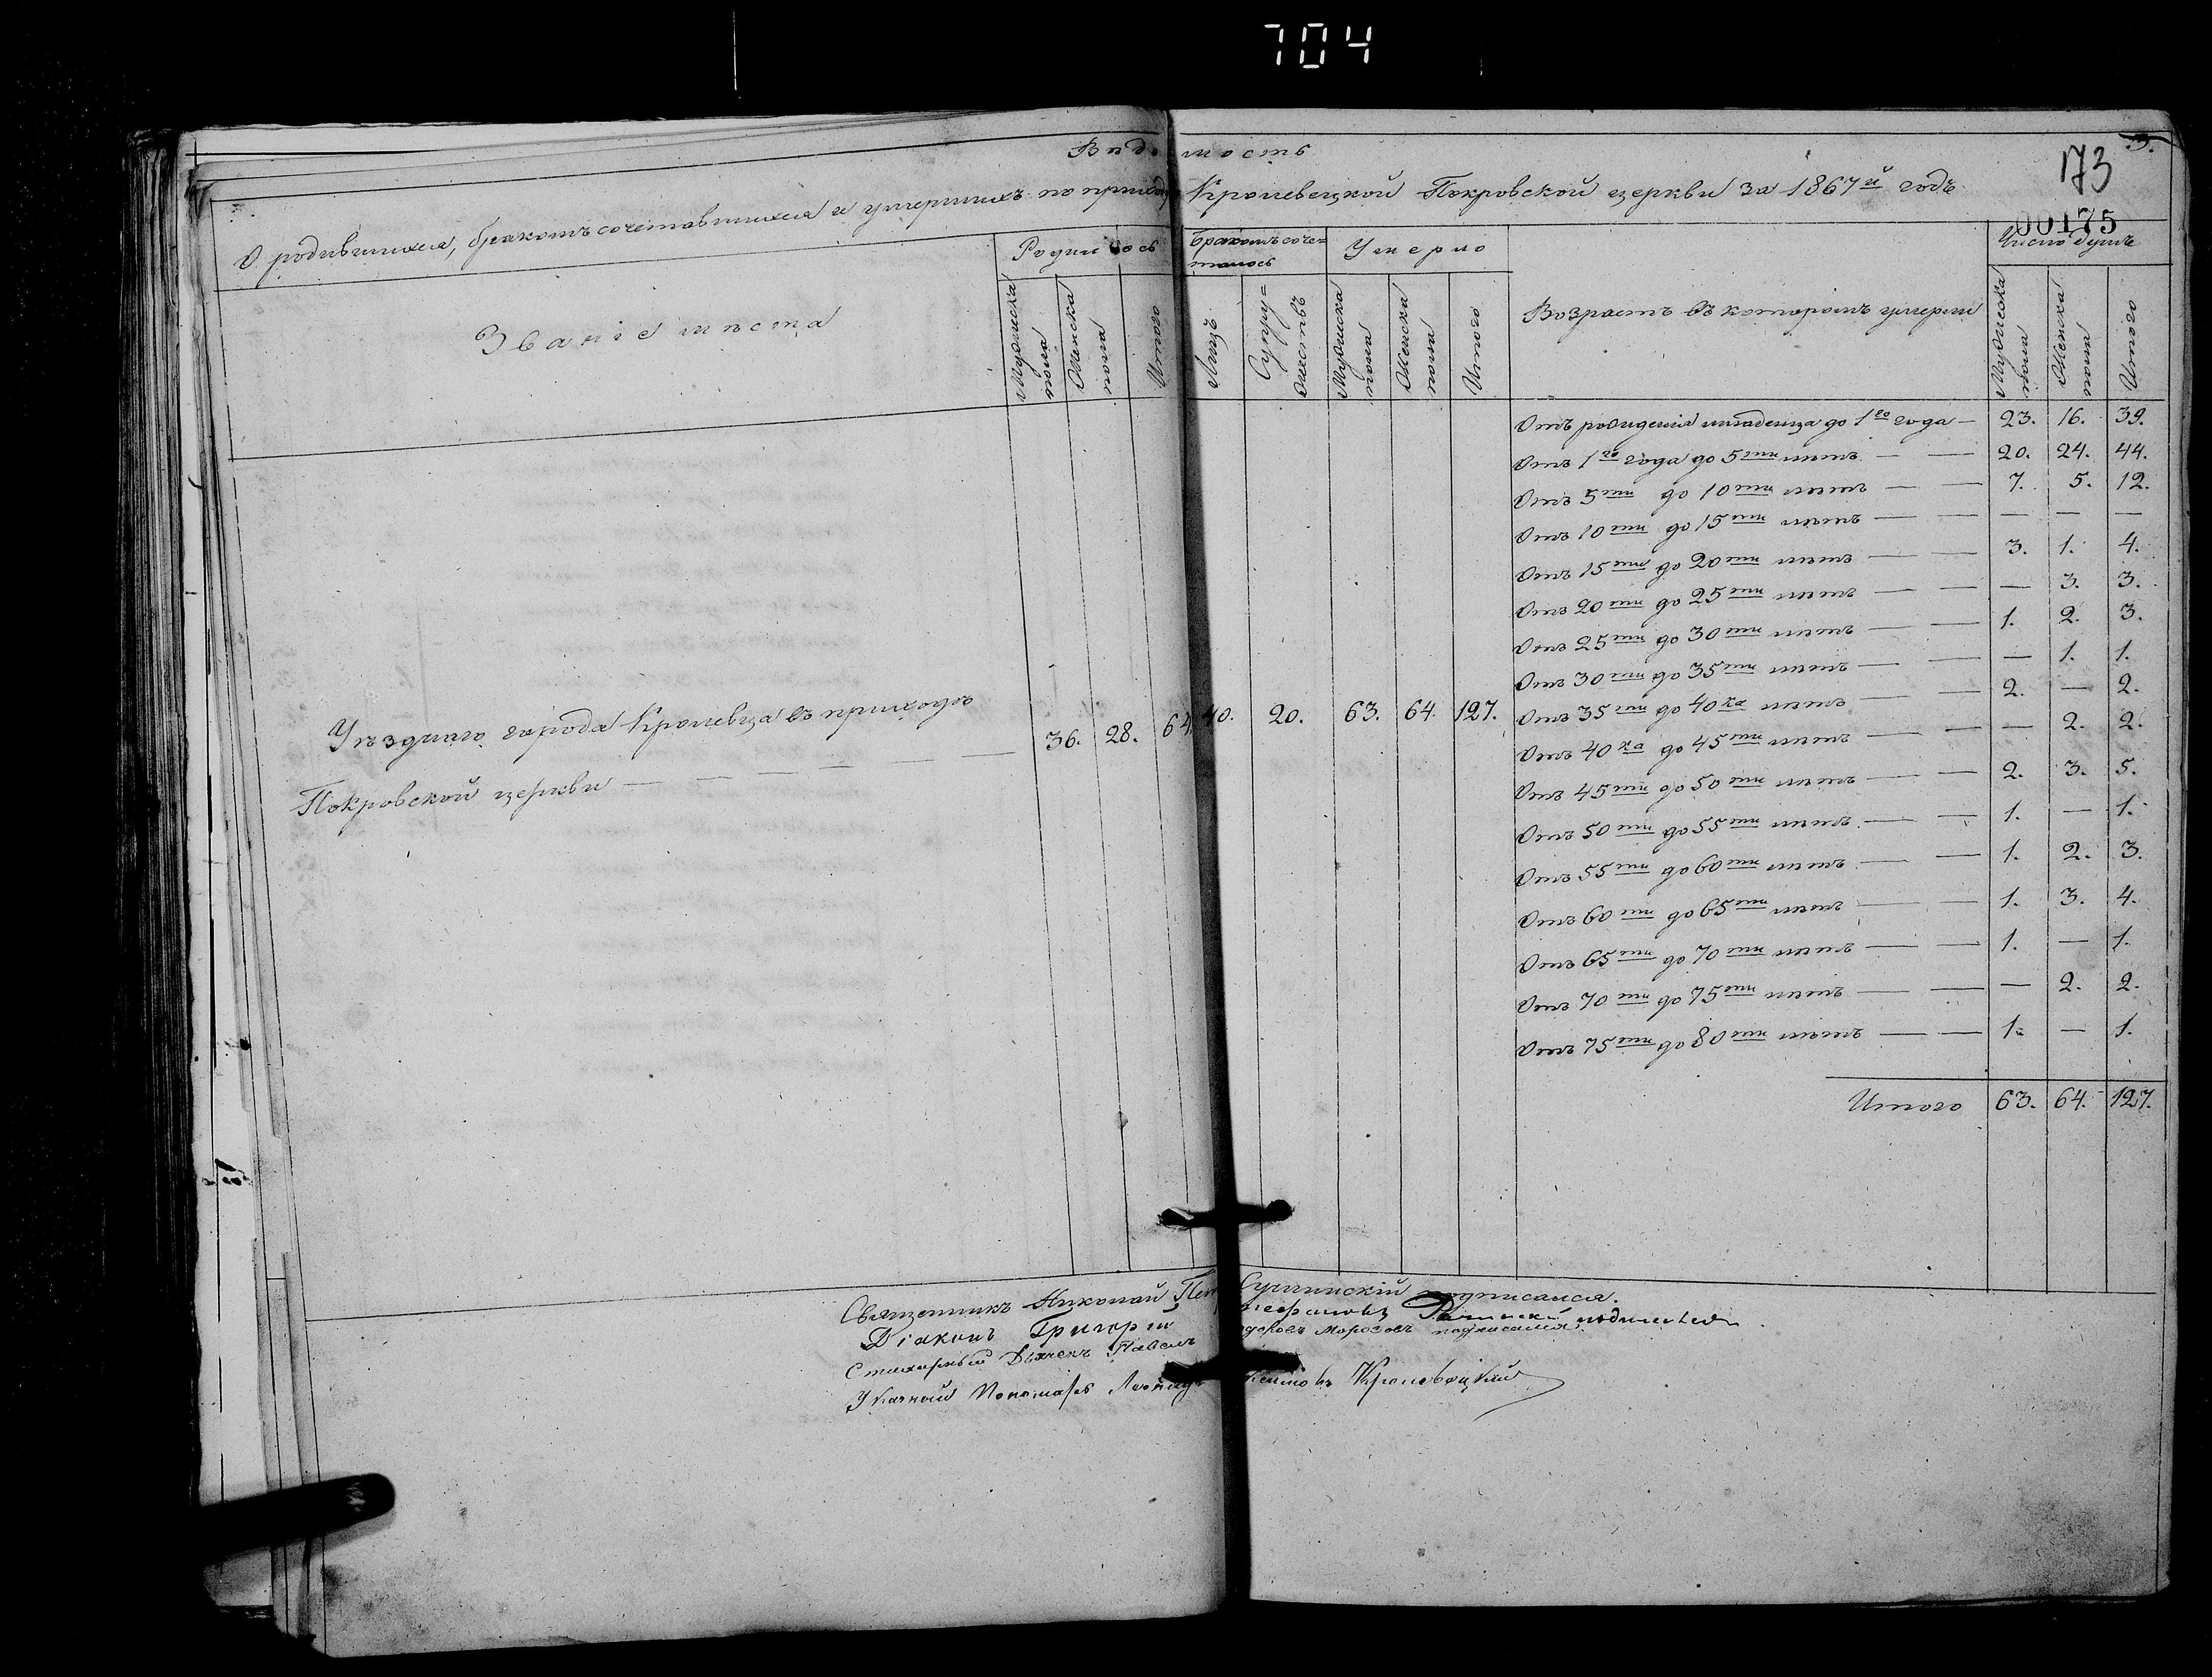 704
Вѣдомость
3.
173
00175
О родившихся, бракомъ сочетавшихся и умершихъ по приходу Кролевецкой Покровской церкви за 1867й годъ
Званіе мѣста
Родилось
Мужеска пола
Женска пола
Итого
Бракомъ соче=
талось
Лицъ
Супру=
жествъ
Умерло
Мужеска пола
Женска пола
Итого
Возрастъ въ которомъ умерли
Число душъ
Мужеска пола
Женска пола
Итого
Уѣзднаго города Кролевца въ приходѣ
Покровской церкви — 36. 28. 64. 40. 20. 63. 64. 127.
Отъ рожденія младенца до 1го года — 23. 16. 39.
Отъ 1го года до 5ти лѣтъ — — 20. 24. 44.
Отъ 5ти до 10ти лѣтъ — — 7. 5. 12.
Отъ 10ти до 15ти лѣтъ — — — — —
Отъ 15ти до 20ти лѣтъ — — 3. 1. 4.
Отъ 20ти до 25ти лѣтъ — — — 3. 3.
Отъ 25ти до 30ти лѣтъ — — 1. 2. 3.
Отъ 30ти до 35ти лѣтъ — — — 1. 1.
Отъ 35ти до 40ка лѣтъ — — 2. — 2.
Отъ 40ка до 45ти лѣтъ — — — 2. 2.
Отъ 45ти до 50ти лѣтъ — — 2. 3. 5.
Отъ 50ти до 55ти лѣтъ — — 1. — 1.
Отъ 55ти до 60ти лѣтъ — — 1. 2. 3.
Отъ 60ти до 65ти лѣтъ — — 1. 3. 4.
Отъ 65ти до 70ти лѣтъ — — 1. — 1.
Отъ 70ти до 75ти лѣтъ — — — 2. 2.
Отъ 75ти до 80ти лѣтъ — — 1. — 1.
Итого 63. 64. 127.
Священникъ Николай подписался.
Діаконъ Григорій подписался
Стихарный Дьячекъ Павелъ Морозовъ подписался
Указный Пономарь Кролевецкий